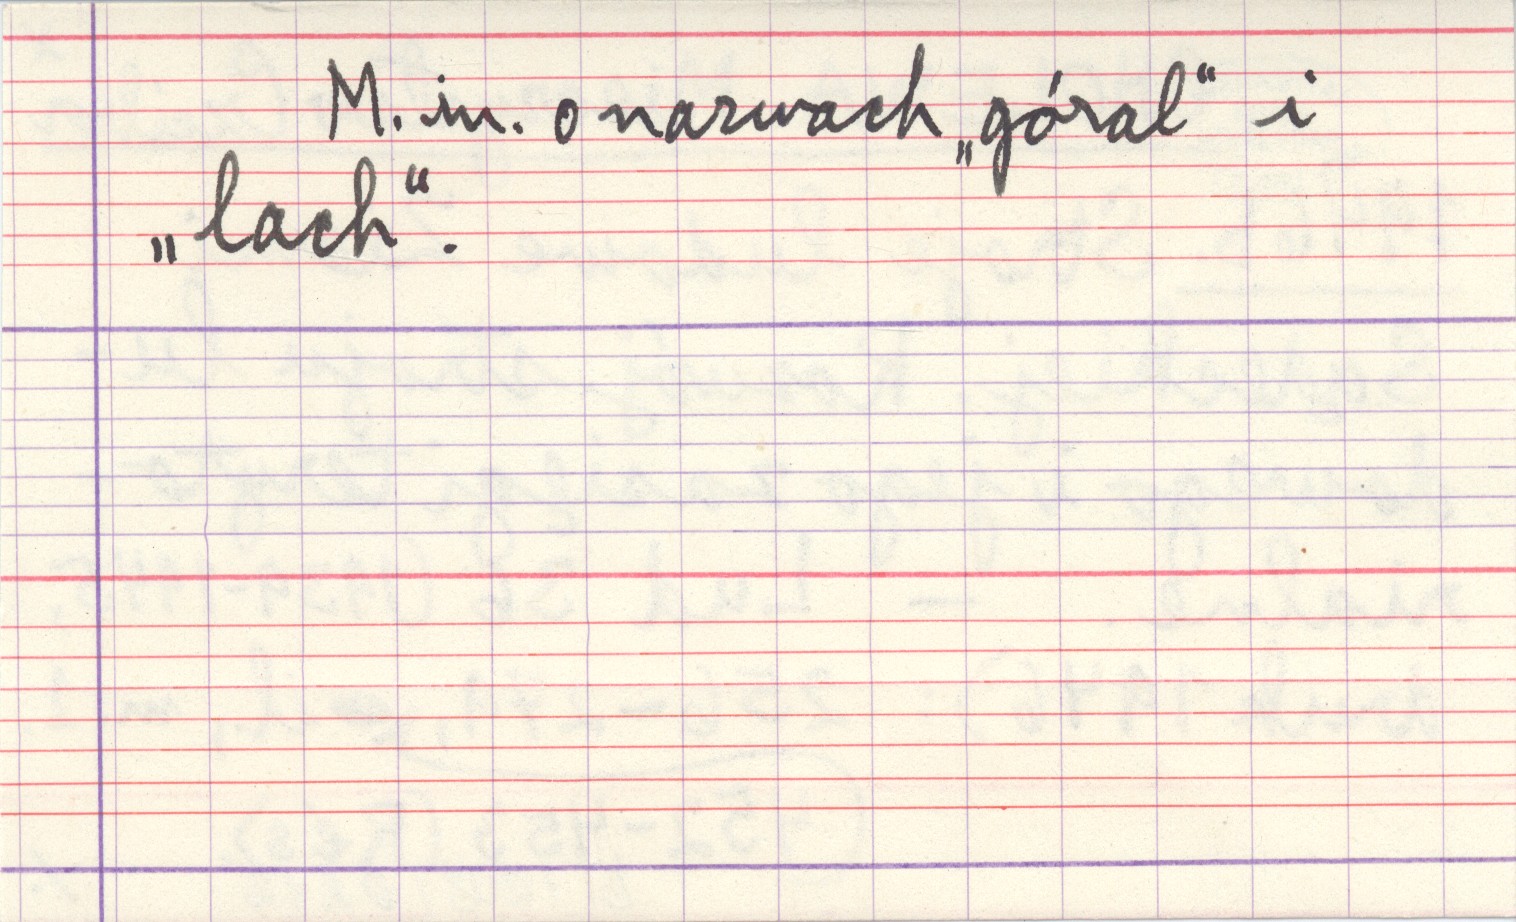 M. in. o nazwach „góral“ i
„lach“.